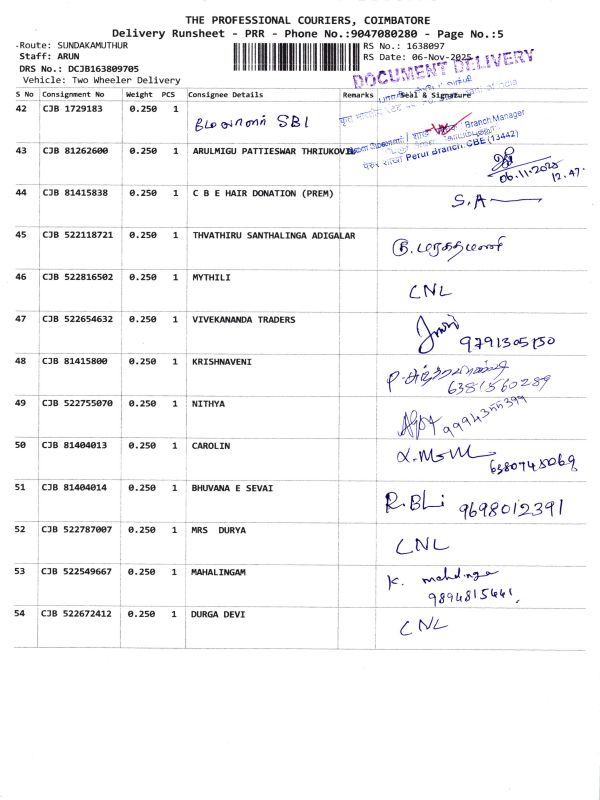 THE PROFESSIONAL COURIERS, COIMBATORE
Delivery Runsheet - PRR - Phone No.:9047080280 - Page No.:5
Route: SUNDAKAMUTHUR RS No.: 1638097
Staff: ARUN RS Date: 06-Nov-2025
DRS No.: DCJB163809705
Vehicle: Two Wheeler Delivery
DOCUMENT DELIVERY
S No Consignment No Weight PCS Consignee Details Remarks Seal & Signature
42 CJB 1729183 0.250 1 மேலாளர் SBI
Branch Manager
Perur Branch CBE (13442)
43 CJB 81262600 0.250 1 ARULMIGU PATTIESWAR THRIUKOVIL
06.11.2025
12.47
44 CJB 81415838 0.250 1 C B E HAIR DONATION (PREM) S.A
45 CJB 522118721 0.250 1 THVATHIRU SANTHALINGA ADIGALAR
46 CJB 522816502 0.250 1 MYTHILI CNL
47 CJB 522654632 0.250 1 VIVEKANANDA TRADERS 9791305150
48 CJB 81415800 0.250 1 KRISHNAVENI
6381560289
49 CJB 522755070 0.250 1 NITHYA 9994355399
50 CJB 81404013 0.250 1 CAROLIN
51 CJB 81404014 0.250 1 BHUVANA E SEVAI 9698012391
52 CJB 522787007 0.250 1 MRS DURYA CNL
53 CJB 522549667 0.250 1 MAHALINGAM K.
9894815441
54 CJB 522672412 0.250 1 DURGA DEVI CNL